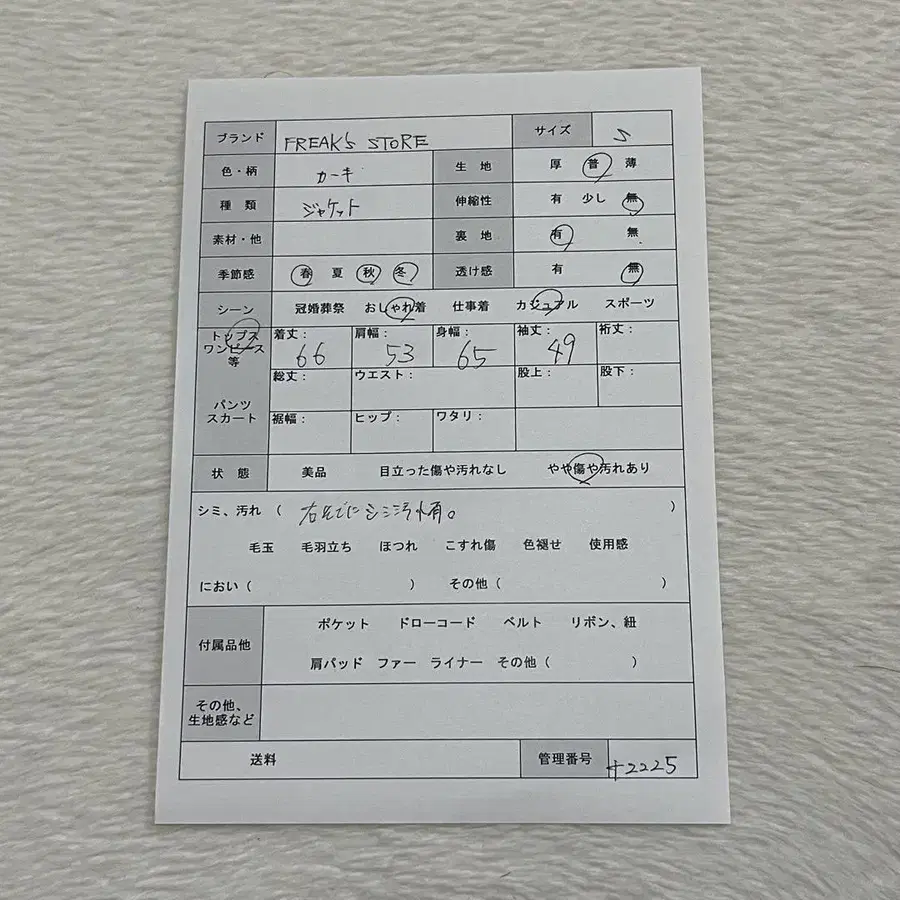 ブランド FREAK's STORE サイズ S
色・柄 カーキ 生地 厚 普 薄
種類 ジャケット 伸縮性 有 少し 無
素材・他 裏地 有 無
季節感 春 夏 秋 冬 透け感 有 無
シーン 冠婚葬祭 おしゃれ着 仕事着 カジュアル スポーツ
トップス ワンピース 等 着丈: 66 肩幅: 53 身幅: 65 袖丈: 49 裄丈:
パンツ スカート 総丈: ウエスト: 股上: 股下:
裾幅: ヒップ: ワタリ:
状態 美品 目立った傷や汚れなし やや傷や汚れあり
シミ、汚れ ( 右そでにシミ汚 。 )
毛玉 毛羽立ち ほつれ こすれ傷 色褪せ 使用感
におい ( ) その他 ( )
付属品他 ポケット ドローコード ベルト リボン、紐
肩パッド ファー ライナー その他 ( )
その他、
生地感など
送料 管理番号 2225